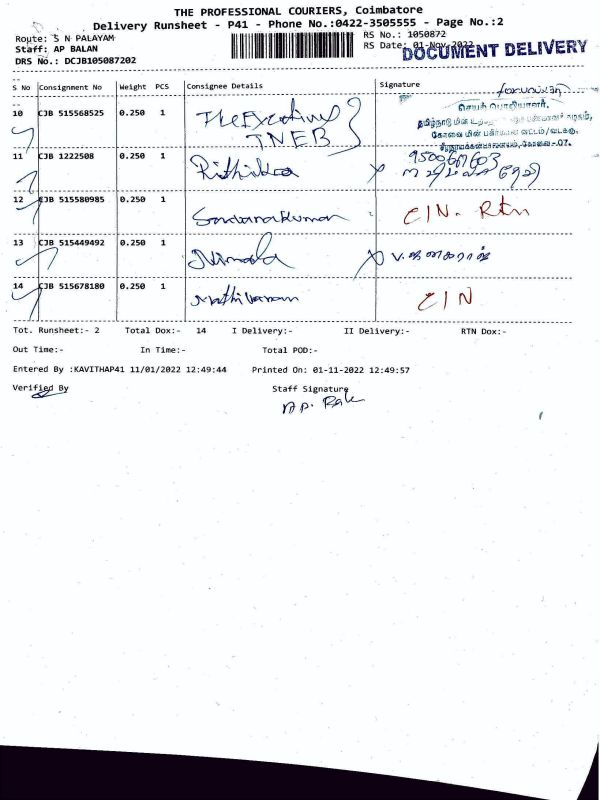 THE PROFESSIONAL COURIERS, Coimbatore
Delivery Runsheet - P41 - Phone No.:0422-3505555 - Page No.:2
Route: S N PALAYAM
RS No.: 1050872
Staff: AP BALAN
RS Date: 01-Nov-2022
DOCUMENT DELIVERY
DRS No.: DCJB105087202
S No Consignment No Weight PCS Consignee Details Signature
10 CJB 515568525 0.250 1 The Executive
TNEB
செயற் பொறியாளர்,
கோவை மின் பகிர்மான வட்டம்/வடக்கு,
கோவை-07.
11 CJB 1222508 0.250 1 Rithikka
12 CJB 515580985 0.250 1 Sandanakumar C/N. Rtn
13 CJB 515449492 0.250 1 Nirmala
14 CJB 515678180 0.250 1 Mathivanan C/N
Tot. Runsheet:- 2 Total Dox:- 14 I Delivery:- II Delivery:- RTN Dox:-
Out Time:- In Time:- Total POD:-
Entered By :KAVITHAP41 11/01/2022 12:49:44 Printed On: 01-11-2022 12:49:57
Verified By Staff Signature